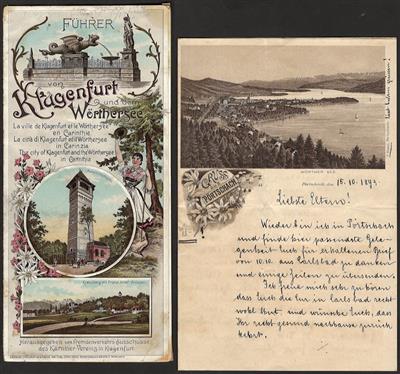 FÜHRER
von
Klagenfurt
und dem
Wörthersee
La ville de Klagenfurt et le Wörthersee
en Carinthie
La città di Klagenfurt ed il Wörthersee
in Carinzia
The city of Klagenfurt and the Wörthersee
in Carinthia
Kreuzberg mit Franz Josef
Herausgegeben vom Fremdenverkehrs-Ausschusse
des Kärntner-Vereins in Klagenfurt
WÖRTHER SEE
GRUSS
PÖRTSCHACH
15.10.1893
Liebste Eltern!
Wieder bin ich in Pörtschach
und finde hier passendste Gele-
genheit Euch für erhaltenen Brief
vom 10.10. aus Carlsbad zu danken
und einige Zeilen zu übersenden.
Ich freue mich sehr zu hören
dass Euch die Cur in Carlsbad recht
wohl thut, und wünsche Euch, dass
Ihr recht gesund nachhause zurück
kehrt.